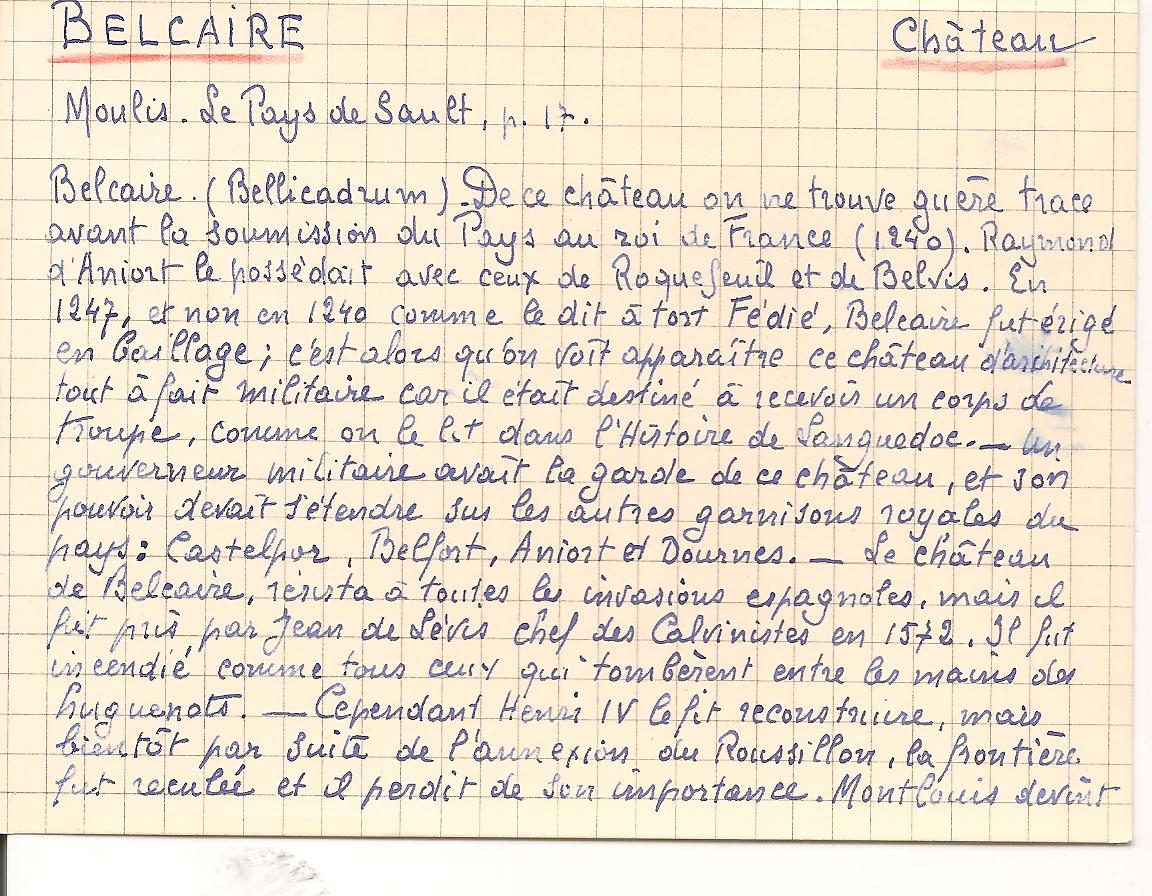 BELCAIRE Château
Moulis. Le Pays de Sault, p. 17.
Belcaire. (Bellicadrum). De ce château on ne trouve guère trace
avant la soumission du Pays au roi de France (1240). Raymond
d'Aniort le possédait avec ceux de Roquefeuil et de Belvis. En
1247, et non en 1240 comme le dit à tort Fédié, Belcaire fut érigé
en Baillage ; c'est alors qu'on voit apparaître ce château d'architecture
tout à fait militaire car il était destiné à recevoir un corps de
troupe, comme on le lit dans l'Histoire de Languedoc. — Un
gouverneur militaire avait la garde de ce château, et son
pouvoir devait s'étendre sur les autres garnisons royales du
pays : Castelpor, Belfort, Aniort et Dournes. — Le château
de Belcaire, résista à toutes les invasions espagnoles, mais il
fut pris par Jean de Lévis chef des Calvinistes en 1572. Il fut
incendié comme tous ceux qui tombèrent entre les mains des
huguenots. — Cependant Henri IV le fit reconstruire, mais
bientôt par suite de l'annexion du Roussillon, la frontière
fut reculée et il perdit de son importance. Montlouis devint